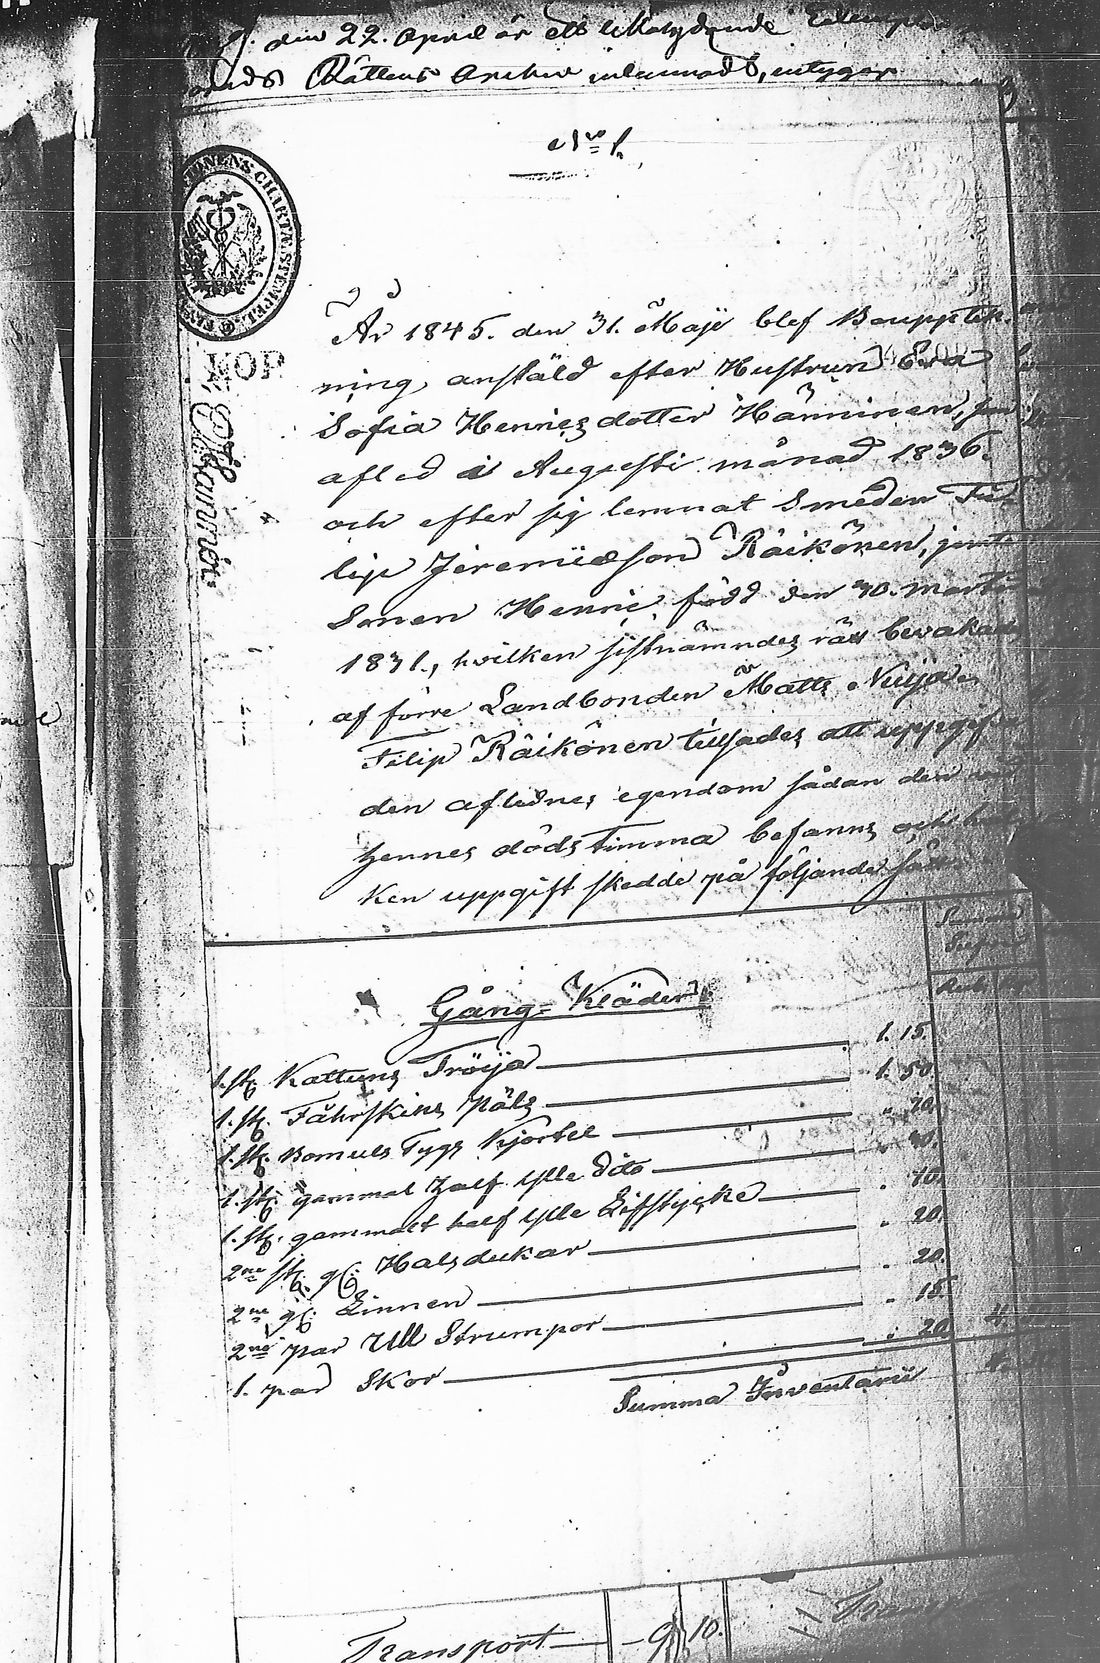 den 22. April är ett likalydande
Rättens Archiv inlemnadt, intygar
No 1.
CHARTÆ STEMPEL
KOP
År 1845. den 31. Maji blef Bouppteck
ning anstäld efter Hustrun Eva
Sofia Henricsdotter Hänninen, som
afled i Augusti månad 1836.
och efter sig lemnat Smeden Fi-
lip Jeremiæson Räikönen, jemte
Sonen Henric, född den 30. Martii
1831., hvilken sistnämndes rätt bevakades
af förre Landbonden Matts Nuija.
Filip Räikönen tillsades att uppgifva
den aflednes egendom sådan den vid
hennes dödstimma befanns, och hvil
ken uppgift skedde på följande sätt
Gång-Kläder
1. st. Kattuns Tröija 1. 15.
1. st. Fåhrskins Päls 1. 50.
1. st. Bomuls Tygs Kjortel " 70.
1. st. gammal half ylle dito " 40.
1. st. gammalt half ylle Lifstycke " 10.
2ne st. gl. Halsdukar " 20.
2ne gl. Linnen " 20.
2ne par Ull Strumpor " 15.
1. par Skor " 20.
Summa Inventarii
Transport 9 10.